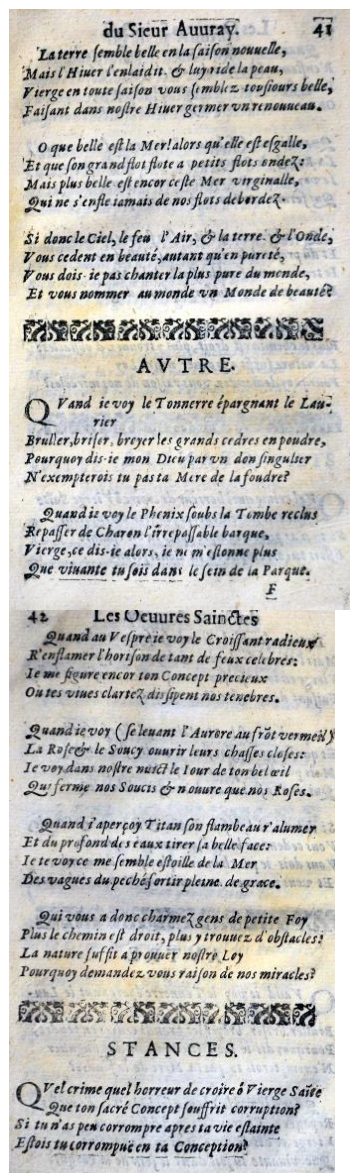 du Sieur Auuray. 41
La terre semble belle en la saison nouuelle,
Mais l'Hiuer l'enlaidit. & luy ride la peau,
Vierge en toute saison vous semblez tousiours belle,
Faisant dans nostre Hiuer germer vn renouueau.
O que belle est la Mer! alors qu'elle est esgalle,
Et que son grand flot flote a petits flots ondez:
Mais plus belle est encor ceste Mer virginalle,
Qui ne s'enfle iamais de nos flots debordez.
Si donc le Ciel, le feu l'Air, & la terre. & l'Onde,
Vous cedent en beauté, autant qu'en pureté,
Vous dois-ie pas chanter la plus pure du monde,
Et vous nommer au monde vn Monde de beauté?
AVTRE.
QVand ie voy le Tonnerre épargnant le Lau-
rier
Brusler, briser, breyer les grands cedres en poudre,
Pourquoy dis-ie mon Dieu par vn don singulier
N'exempterois tu pas ta Mere de la foudre?
Quand ie voy le Phenix soubs la Tombe reclus
Repasser de Charon l'irrepassable barque,
Vierge, ce dis-ie alors, ie ne m'estonne plus
Que viuante tu sois dans le sein de la Parque.
F
42 Les Oeuures Sainctes
Quand au Vespre ie voy le Croissant radieux
R'enflamer l'horison de tant de feux celebres:
Ie me figure encor ton Concept precieux
Ou tes viues clartez dissipent nos tenebres.
Quand ie voy (se leuant l'Aurore au frõt vermeil)
La Rose & le Soucy ouurir leurs chasses closes:
Ie voy dans nostre nuict le Iour de ton bel œil
Qui ferme nos Soucis & n'ouure que nos Roses.
Quand i'aperçoy Titan son flambeau r'alumer
Et du profond des eaux tirer sa belle face:
Ie te voy ce me semble estoille de la Mer
Des vagues du peché sortir pleine de grace.
Qui vous a donc charmez gens de petite Foy
Plus le chemin est droit, plus y trouuez d'obstacles:
La nature suffit a prouuer nostre Loy
Pourquoy demandez vous raison de nos miracles?
STANCES.
QVel crime quel horreur de croire ô Vierge Saĩte
Que ton sacré Concept souffrit corruption?
Si tu n'as peu corrompre apres ta vie estainte
Estois tu corrompuë en ta Conception?